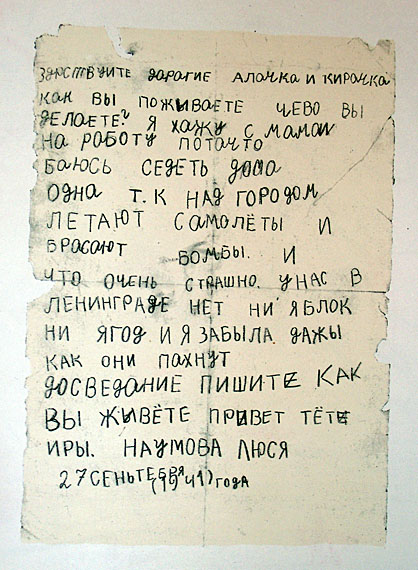 ЗДРСТВУИТЕ ДАРАГИЕ АЛАЧКА И КИРАЧКА
КАК ВЫ ПОЖИВАЕТЕ ЧЕВО ВЫ
ДЕЛАЕТЕ? Я ХАЖУ С МАМАЙ
НА РОБОТУ ПОТАЧТО
БАЮСЬ СЕДЕТЬ ДОМА
ОДНА Т.К НАД ГОРОДОМ
ЛЕТАЮТ САМОЛЁТЫ И
БРАСАЮТ БОМБЫ. И
ЧТО ОЧЕНЬ СТРАШНО. У НАС В
ЛЕНИНГРАДЕ НЕТ НИ ЯБЛОК
НИ ЯГОД И Я ЗАБЫЛА ДАЖЫ
КАК ОНИ ПАХНУТ
ДОСВЕДАНИЕ ПИШИТЕ КАК
ВЫ ЖИВЁТЕ ПРИВЕТ ТЁТЕ
ИРЫ. НАУМОВА ЛЮСЯ
27 СЕНЬТЕБРЯ (1941) ГОДА